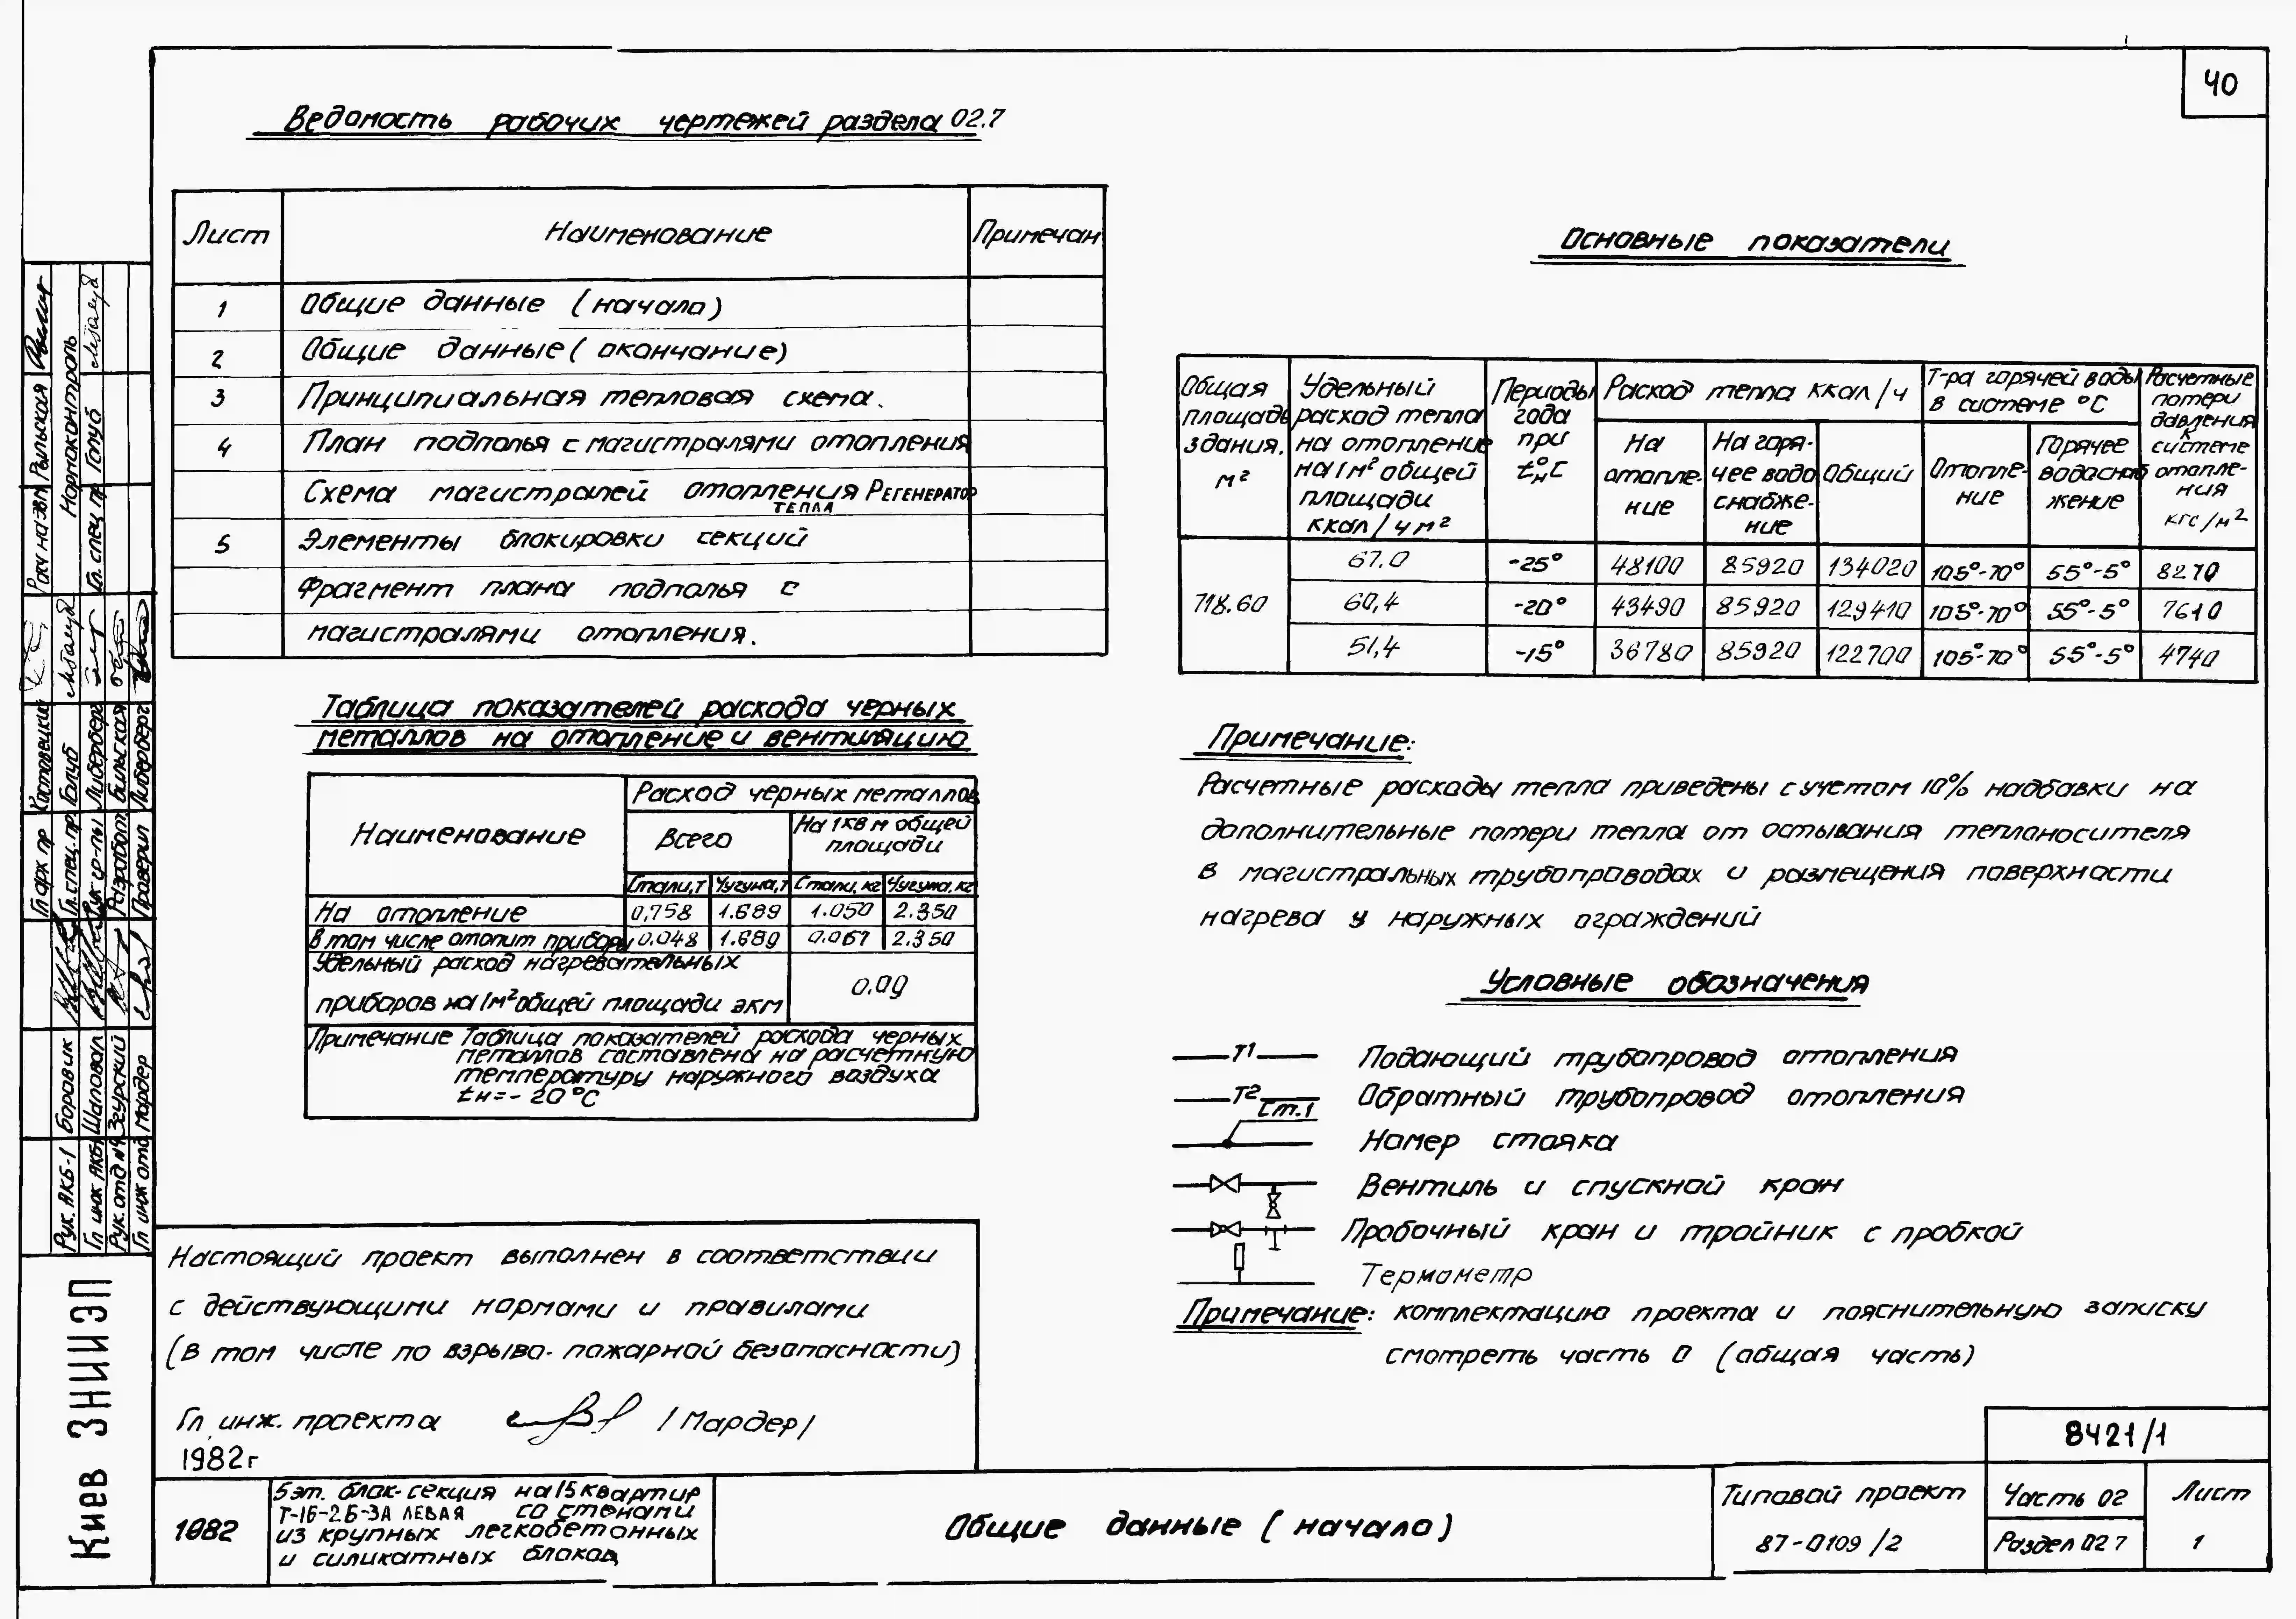 40
Ведомость рабочих чертежей раздела 02.7
Лист Наименование Примечан
1 Общие данные (начало)
2 Общие данные (окончание)
3 Принципиальная тепловая схема.
4 План подполья с магистралями отопления
Схема магистралей отопления Регенератор
тепла
5 Элементы блокировки секций
Фрагмент плана подполья с
магистралями отопления.
Таблица показателей расхода черных
металлов на отопление и вентиляцию
Наименование
Расход черных металлов
Всего
На 1 кв м общей
площади
Стали,т Чугуна,т Стали, кг Чугуна, кг
На отопление 0,758 1.689 1.050 2.350
В том числе отопит приборы 0.048 1.689 0.067 2.350
Удельный расход нагревательных
приборов на 1м² общей площади экм
0.09
Примечание Таблица показателей расхода черных
металлов составлена на расчетную
температуру наружного воздуха
tн=-20°С
Настоящий проект выполнен в соответствии
с действующими нормами и правилами
(в том числе по взрыво-пожарной безопасности)
Гл. инж. проекта /Мардер/
1982г
Основные показатели
Общая
площадь
здания.
м²
Удельный
расход тепла
на отопление
на 1м² общей
площади
ккал/чм²
Периоды
года
при
tн°С
Расход тепла ккал/ч
На
отопле-
ние
На горя-
чее водо
снабже-
ние
Общий
Т-ра горячей воды
в системе °С
Отопле-
ние
Горячее
водоснаб
жение
Расчетные
потери
давления
к
системе
отопле-
ния
кгс/м²
718.60
67.0 -25° 48100 85920 134020 105°-70° 55°-5° 8270
60,4 -20° 43490 85920 129410 105°-70° 55°-5° 7610
51,4 -15° 36780 85920 122700 105°-70° 55°-5° 4740
Примечание:
Расчетные расходы тепла приведены с учетом 10% надбавки на
дополнительные потери тепла от остывания теплоносителя
в магистральных трубопроводах и размещения поверхности
нагрева у наружных ограждений
Условные обозначения
Т1 Подающий трубопровод отопления
Т2 Обратный трубопровод отопления
Ст.1 Номер стояка
Вентиль и спускной кран
Пробочный кран и тройник с пробкой
Термометр
Примечание: комплектацию проекта и пояснительную записку
смотреть часть 0 (общая часть)
8421/1
1982
5 эт. блок-секция на 15 квартир
Т-1Б-2Б-3А левая со стенами
из крупных легкобетонных
и силикатных блоков
Общие данные (начало)
Типовой проект
87-0109/2
Часть 02
Раздел 02 7
Лист
1
Киев ЗНИИЭП
Рук. АКБ-1 Боровик
Гл инж АКБ-1 Шаповал
Рук. отд №9 Згурский
Гл инж отд Мардер
Гл арх пр
Гл. спец. пр. Голуб
Рук гр-пы Либерберг
Разработ.
Проверил Либерберг
Нормоконтроль
Гл. спец пр Голуб